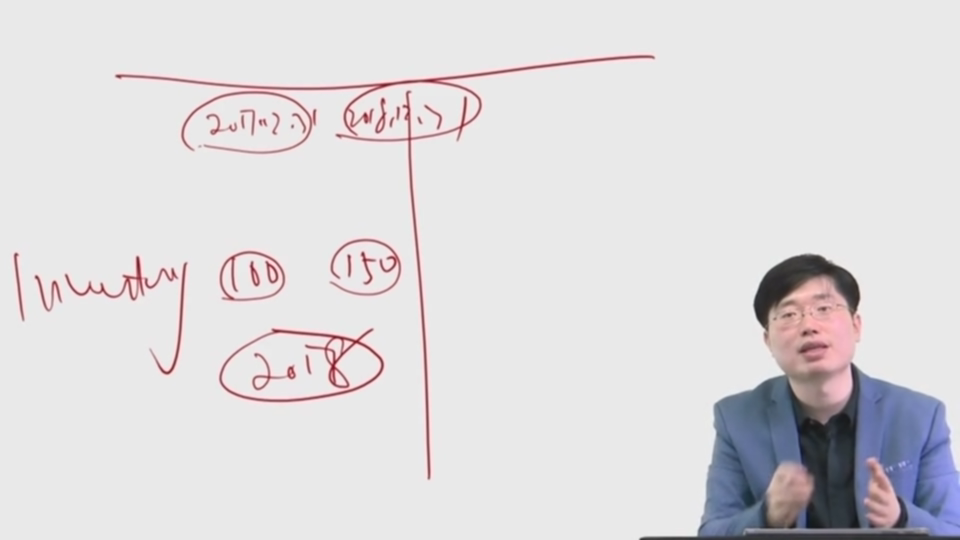 2017.12.31 2018.12.31
Inventory 100 150
2018